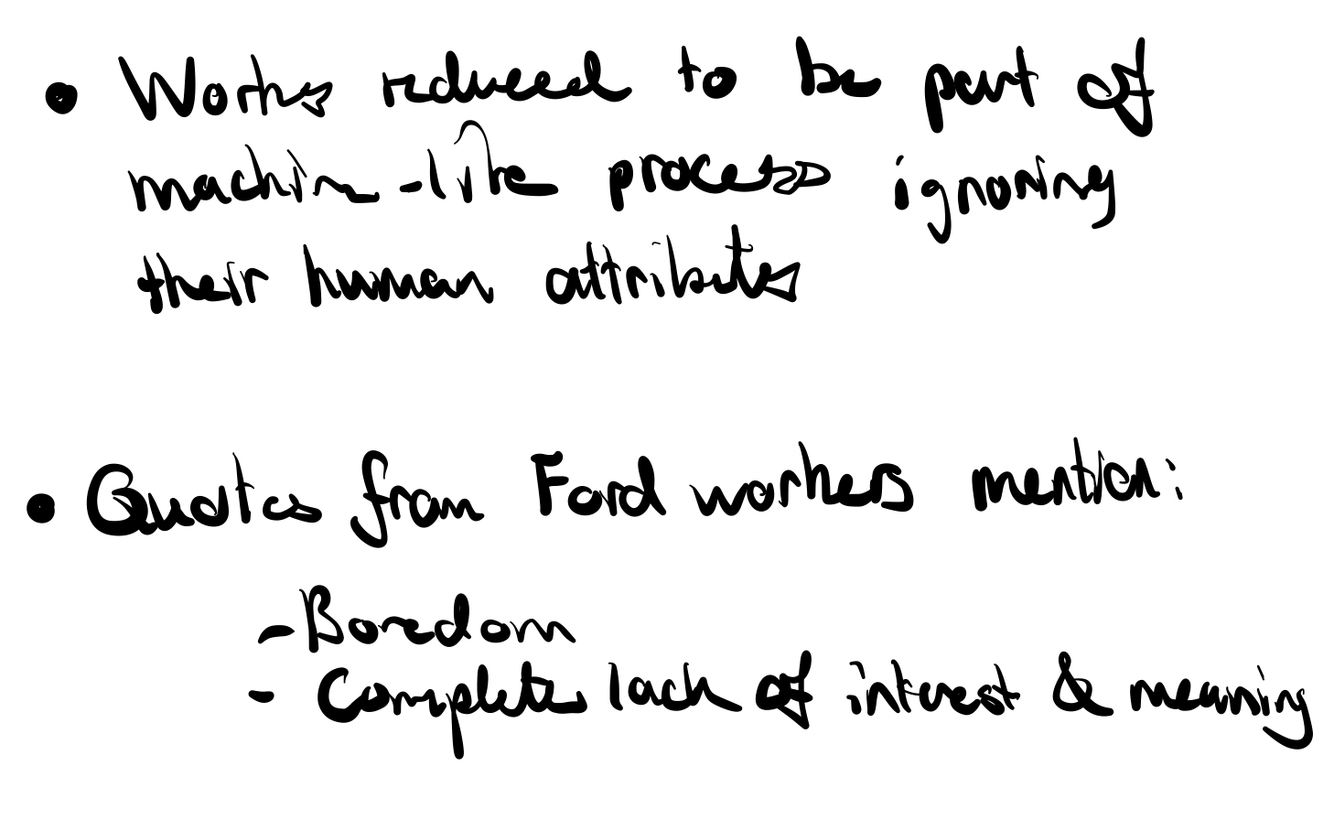 • Works reduced to be part of
machine-like process ignoring
their human attributes
• Quotes from Ford workers mention:
- Boredom
- Complete lack of interest & meaning